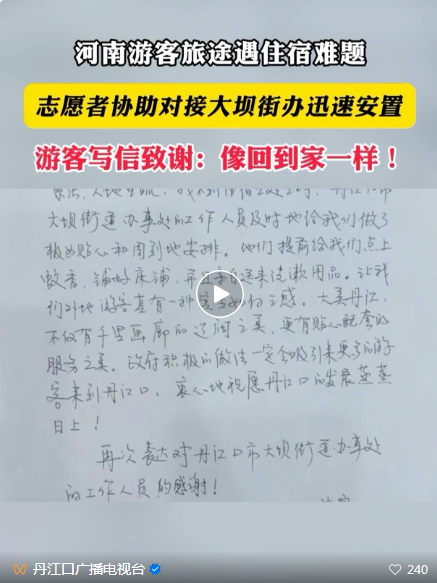 河南游客旅途遇住宿难题
志愿者协助对接大坝街办迅速安置
游客写信致谢：像回到家一样！
找不到住宿之处之时，丹江口市
大坝街道办事处的工作人员及时地给我们做了
极为贴心和周到地安排。他们提前给我们点上
蚊香，铺好床铺，并且送来洗漱用品。让我
们外地游客真有一种宾至如归之感。大美丹江，
不仅有千里画廊的辽阔之美，更有贴心配套的
服务之美。政府积极的做法一定会吸引来更多的游
客来到丹江口，衷心地祝愿丹江口的发展蒸蒸
日上！
再次表达对丹江口市大坝街道办事处
的工作人员的感谢！
丹江口广播电视台
240